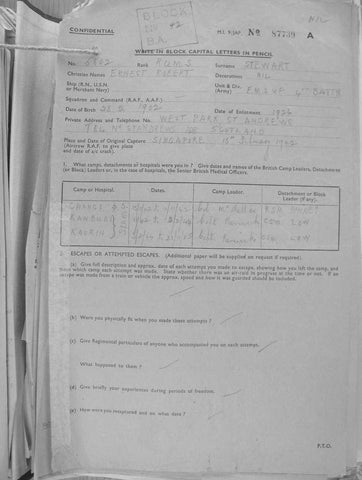 BLOCK
No 42
B.A.
NIL
CONFIDENTIAL
M.I. 9/JAP. No 87739 A
WRITE IN BLOCK CAPITAL LETTERS IN PENCIL.
No. 6802 Rank R.Q.M.S Surname STEWART
Christian Names ERNEST ROBERT Decorations NIL
Ship (R.N., U.S.N. or Merchant Navy) Unit & Div. (Army) 4TH BATTN
Squadron and Command (R.A.F., A.A.F.)
Date of Birth 1902 Date of Enlistment 1926
Private Address and Telephone No. WEST PARK ST ANDREWS
ST ANDREWS SCOTLAND
Place and Date of Original Capture SINGAPORE 15th 1942
(Aircrew R.A.F. to give place
and date of a/c crash).
1. What camps, detachments or hospitals were you in? Give dates and names of the British Camp Leaders, Detachment
(or Block) Leaders or, in case of hospitals, the Senior British Medical Officers.
Camp or Hospital. Dates. Camp Leader. Detachment or Block
Leader (if any).
CHANGI
KANBURI
KAORIN
ESCAPES OR ATTEMPTED ESCAPES. (Additional paper will be supplied on request if required).
(a) Give full description and approx. date of each attempt you made to escape, showing how you left the camp, and
from which camp each attempt was made. State whether there was an air-raid in progress at the time or not. If an
escape was made from a train or vehicle the approx. speed and how it was guarded should be included.
(b) Were you physically fit when you made these attempts?
(c) Give Regimental particulars of anyone who accompanied you on each attempt.
What happened to them?
(d) Give briefly your experiences during periods of freedom.
(e) How were you recaptured and on what date?
P.T.O.